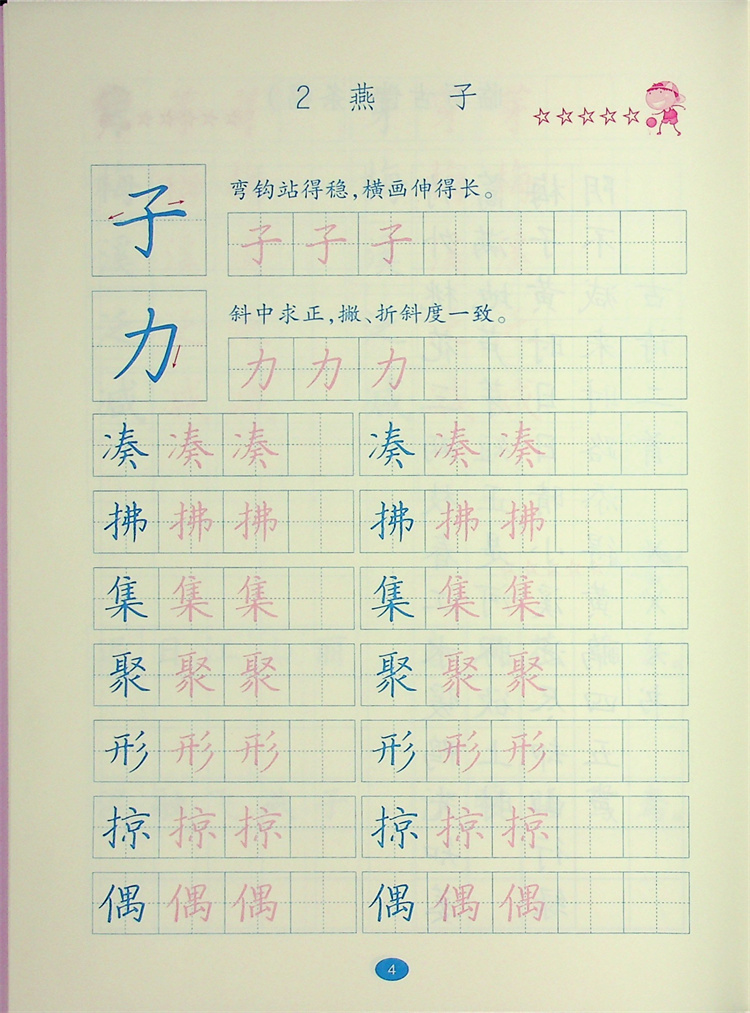 2 燕 子
子 弯钩站得稳,横画伸得长。
子 子 子
力 斜中求正,撇、折斜度一致。
力 力 力
凑 凑 凑 凑 凑 凑
拂 拂 拂 拂 拂 拂
集 集 集 集 集 集
聚 聚 聚 聚 聚 聚
形 形 形 形 形 形
掠 掠 掠 掠 掠 掠
偶 偶 偶 偶 偶 偶
4